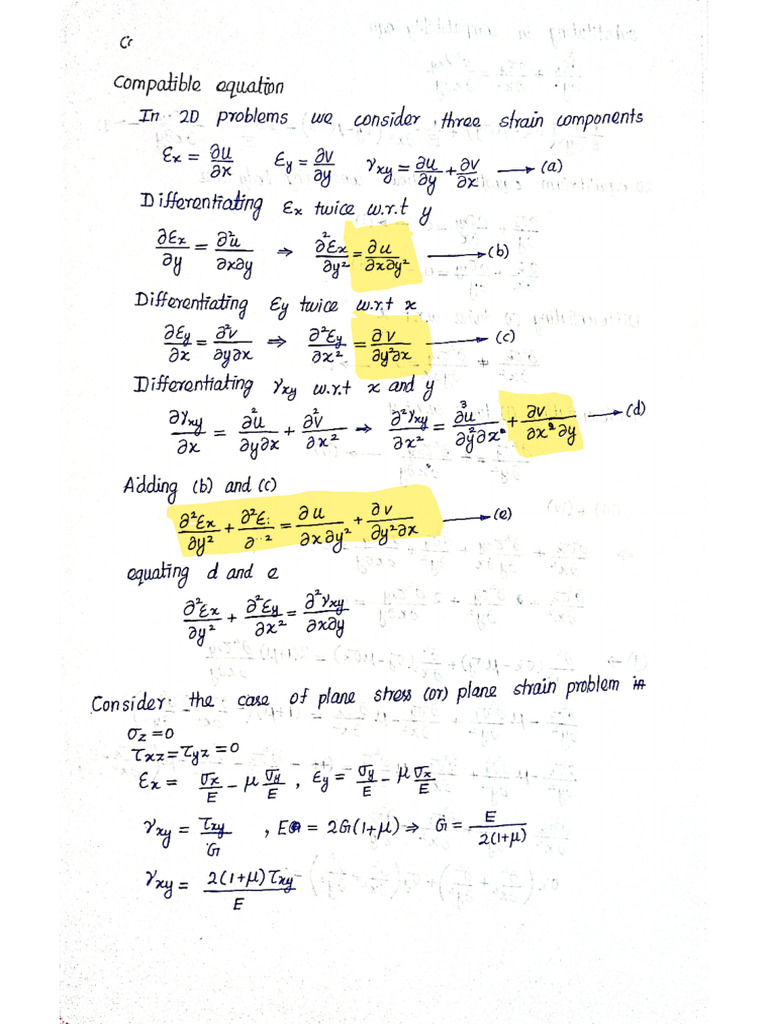 Cr
Compatible equation
In 2D problems we consider three strain components
εx = ∂u/∂x   εy = ∂v/∂y   γxy = ∂u/∂y + ∂v/∂x → (a)
Differentiating εx twice w.r.t y
∂εx/∂y = ∂²u/∂x∂y ⇒ ∂²εx/∂y² = ∂u/∂x∂y² → (b)
Differentiating εy twice w.r.t x
∂εy/∂x = ∂²v/∂y∂x ⇒ ∂²εy/∂x² = ∂v/∂y²∂x → (c)
Differentiating γxy w.r.t x and y
∂γxy/∂x = ∂²u/∂y∂x + ∂²v/∂x² ⇒ ∂²γxy/∂x² = ∂³u/∂y²∂x² + ∂v/∂x²∂y → (d)
Adding (b) and (c)
∂²εx/∂y² + ∂²ε/∂ ² = ∂u/∂x∂y² + ∂v/∂y²∂x → (e)
equating d and e
∂²εx/∂y² + ∂²εy/∂x² = ∂²γxy/∂x∂y
Consider the case of plane stress (or) plane strain problem in
σz = 0
τxz = τyz = 0
εx = σx/E - μ σy/E , εy = σy/E - μ σx/E
γxy = τxy/G , E = 2G(1+μ) ⇒ G = E/2(1+μ)
γxy = 2(1+μ)τxy/E